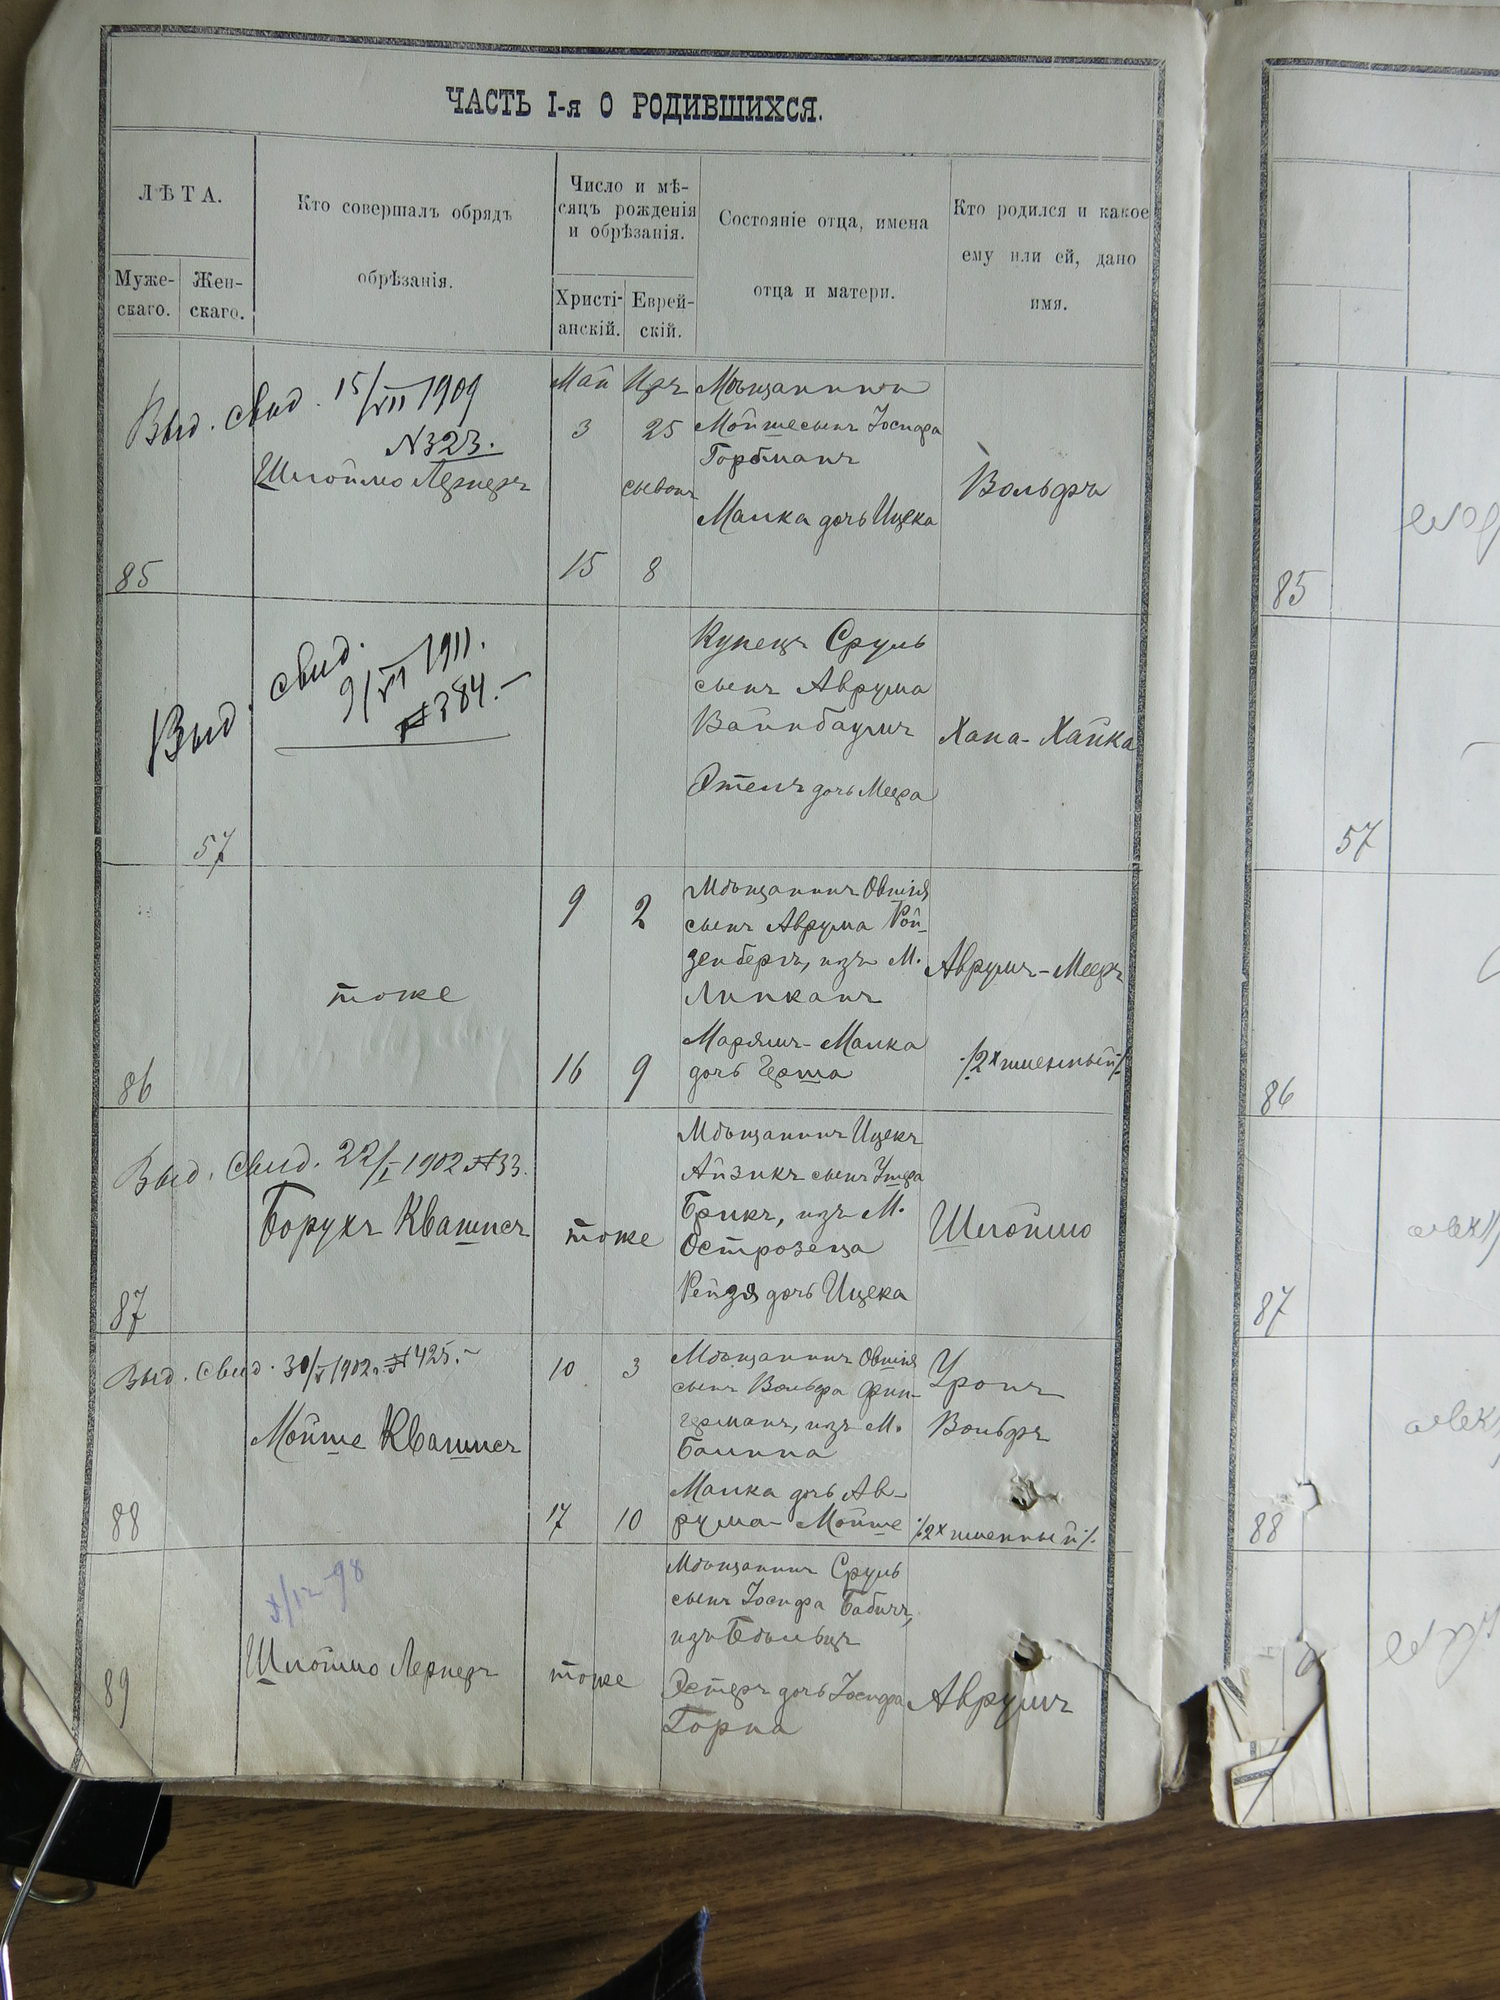 ЧАСТЬ I-я О РОДИВШИХСЯ.
ЛѢТА.
Муже-
скаго.
Жен-
скаго.
Кто совершалъ обрядъ
обрѣзанія.
Число и мѣ-
сяцъ рожденія
и обрѣзанія.
Христі-
анскій.
Еврей-
скій.
Состояніе отца, имена
отца и матери.
Кто родился и какое
ему или ей, дано
имя.
Выд. свид. 15/VII 1909
N323.
Шлоймо Лернеръ
85
Май
3
15
Иръ
25
сывонъ
8
Мѣщанинъ
Мойше сынъ Іосифа
Горбманъ
Малка дочь Ицека
Вольфъ
Выд. свид.
9/VI 1911.
№384.-
57
Купецъ Сруль
сынъ Аврума
Вайнбаумъ
Этель дочь Меера
Хана-Хайка
тоже
86
9
2
16
9
Мѣщанинъ Овшія
сынъ Аврума Рой-
зенбергъ, изъ М.
Липканъ
Марямъ-Малка
дочь Герша
Аврумъ-Мееръ
./2х именный/.
Выд. Свид. 22/I 1902 №33.
Борухъ Квашнеъ
87
тоже
Мѣщанинъ Ицекъ
Айзикъ сынъ Ушера
Брикъ, изъ М.
Острозеца
Рейзя дочь Ицека
Шлоймо
Выд. Свид. 30/X 1902 г. №425.-
Мойше Квашнеъ
88
10
3
17
10
Мѣщанинъ Овшія
сынъ Вольфа Фин-
германъ, изъ М.
Балина
Малка дочь Ав-
рума-Мойше
Уронъ
Вольфъ
./2х именный/.
X/12-98
Шлоймо Лернеръ
89
тоже
Мѣщанинъ Сруль
сынъ Іосифа Бабичъ,
изъ Бѣльцъ
Эстеръ дочь Іосифа
Горна
Аврумъ
85
57
86
87
88